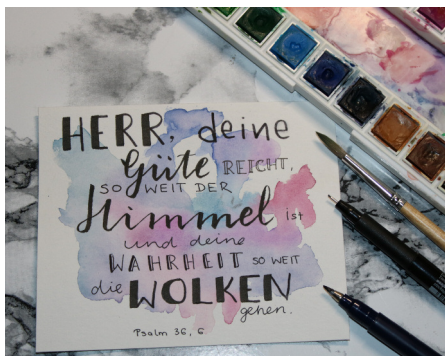 HERR, deine
Güte REICHT,
SO WEIT DER
Himmel ist
und deine
WAHRHEIT SO WEIT
die WOLKEN
gehen.
Psalm 36, 6